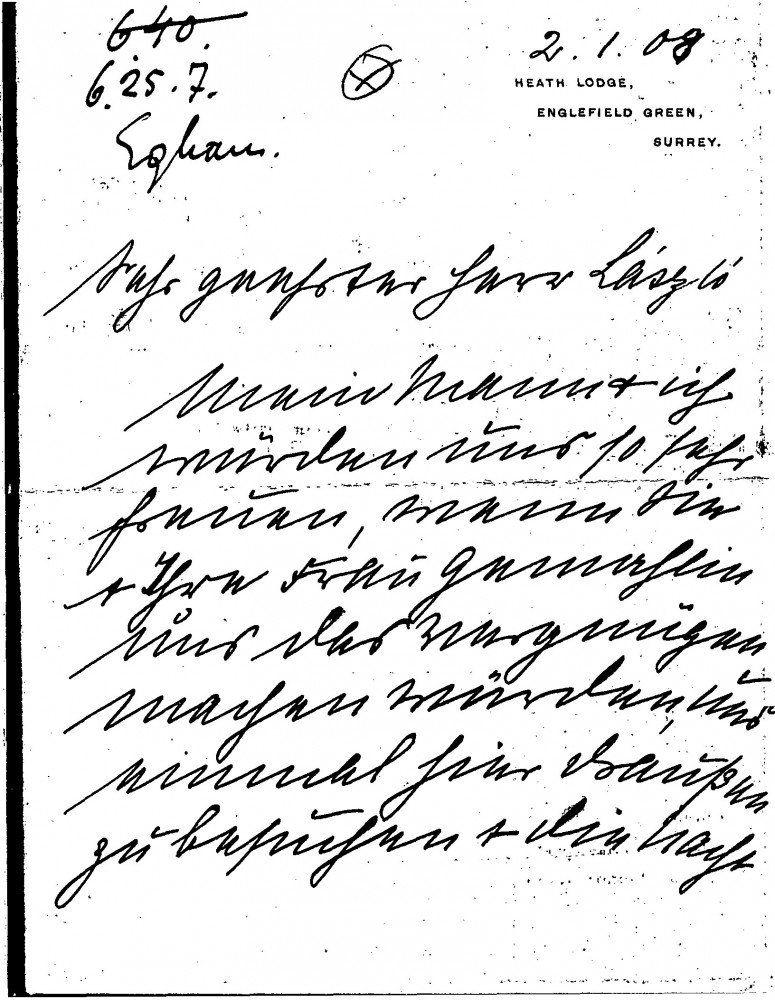 6.40.
6.25.7.
Egham.
2.1.08
HEATH LODGE,
ENGLEFIELD GREEN,
SURREY.
Sehr geehrter Herr László
Mein Mann + ich
würden uns so sehr
freuen, wenn Sie
+ Ihre Frau Gemahlin
uns das Vergnügen
machen würden, uns
einmal hier draußen
zu besuchen + die Nacht